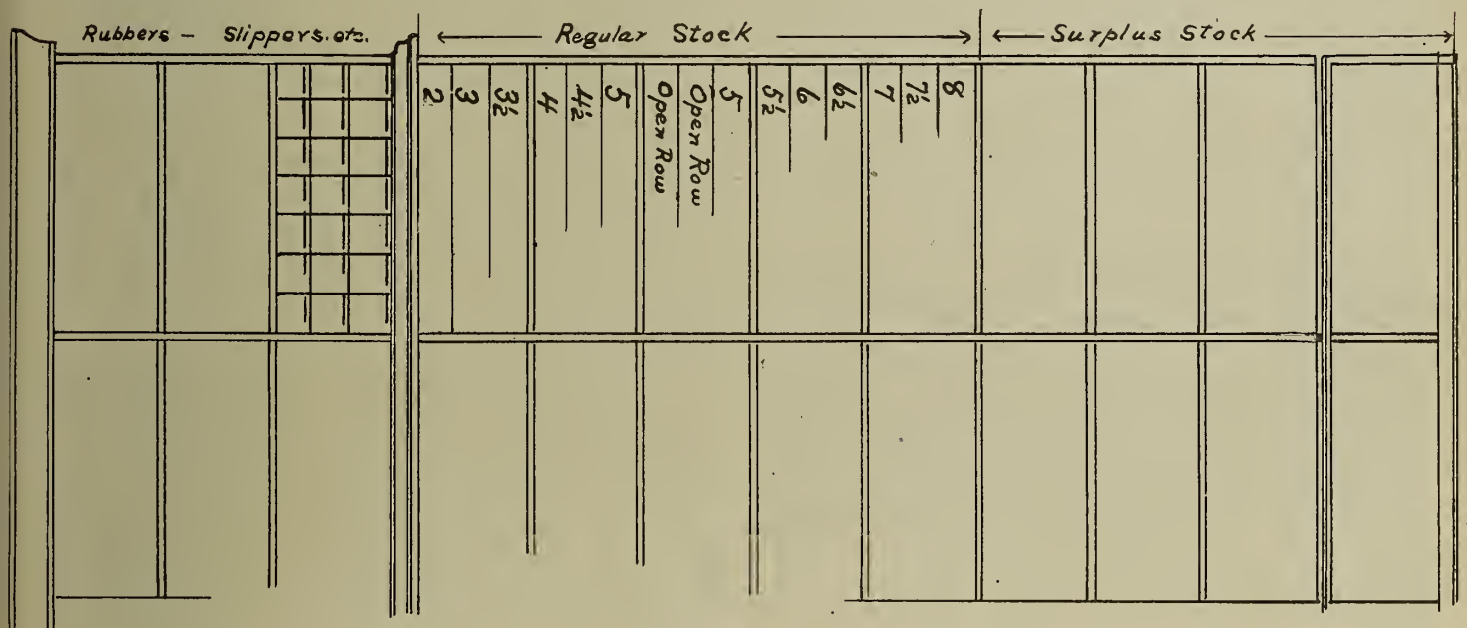 Rubbers – Slippers. etc.
Regular Stock
Surplus Stock
2
3
3½
4
4½
5
Open Row
Open Row
5
5½
6
6½
7
7½
8